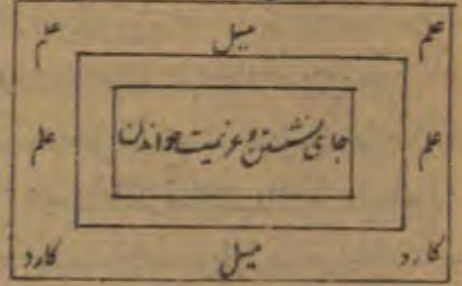 علم میل علم
جای نشستن و عزیمت خواندن
علم علم
کارد میل کارد